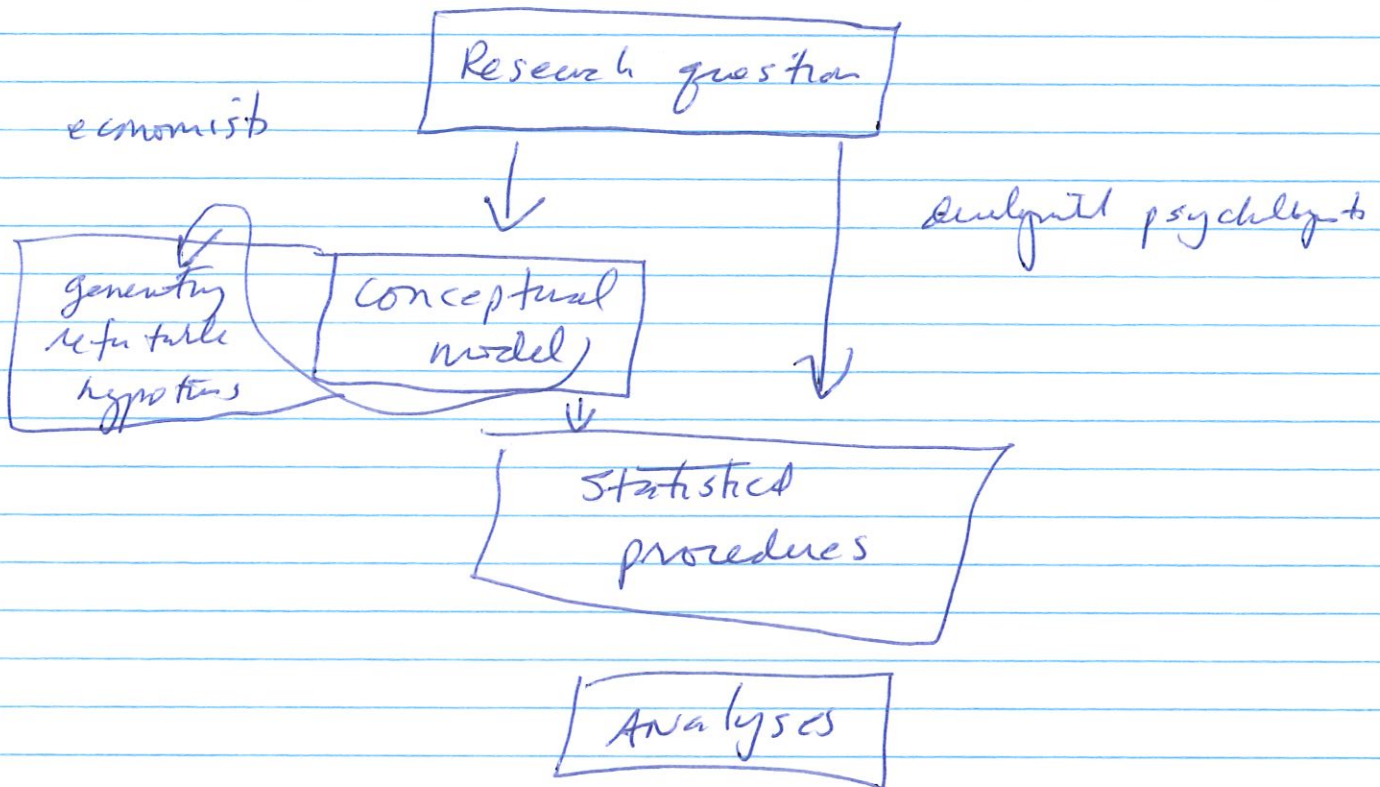 Research question
economists
psychologists
generating
refutable
conceptual
model
Statistical
procedures
Analyses